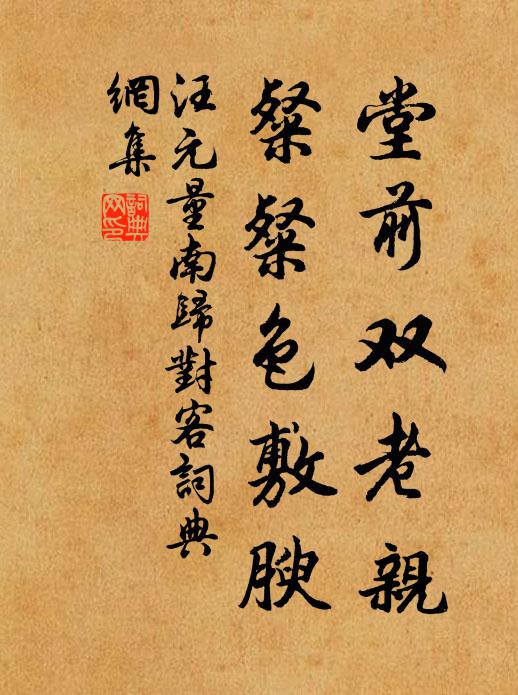 堂前双老親
粲粲色敷腴
汪元量南歸對客詞典
網集
詞典
网印